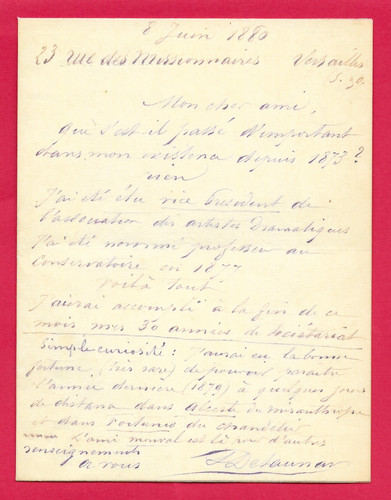 8 Juin 1880
23 rue des Missionnaires Versailles
S. &O.
Mon cher ami,
que s'est-il passé d'important
dans mon existence depuis 1873?
rien
J'ai été élu vice Président de
l'association des artistes Dramatiques
J'ai été nommé professeur au
Conservatoire en 1877
voilà tout
J'aurai accompli à la fin de ce
mois mes 30 années de Sociétariat
Simple curiosité: J'aurai eu la bonne
fortune (très rare) de pouvoir paraître
l'année dernière (1879) à quelques jours
de distance dans alceste du misanthrope
et dans Fortunio du chandelier
L'ami est le roi d'autres
renseignements
à vous LDelaunay